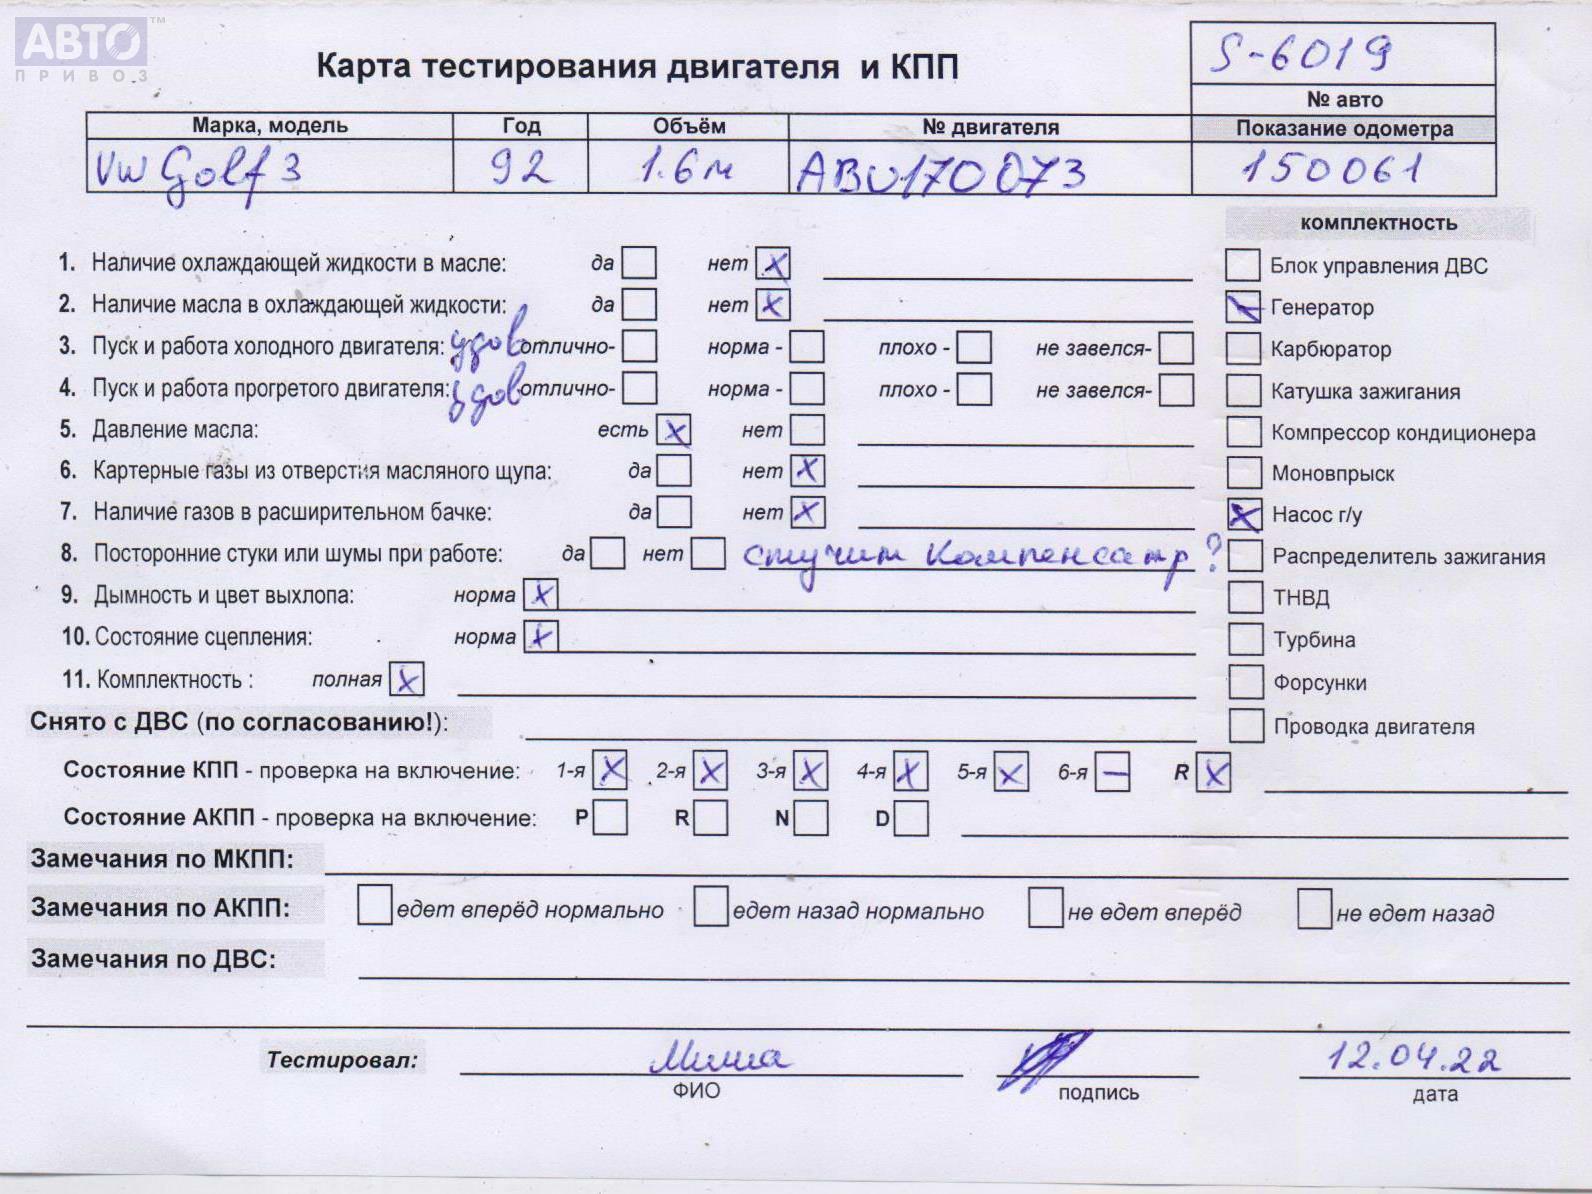 АВТО™
ПРИВОЗ
Карта тестирования двигателя и КПП
S-6019
№ авто
Марка, модель Год Объём № двигателя Показание одометра
VW Golf 3 92 1.6м ABU170073 150061
комплектность
1. Наличие охлаждающей жидкости в масле: да нет X
Блок управления ДВС
2. Наличие масла в охлаждающей жидкости: да нет X
Генератор
3. Пуск и работа холодного двигателя: удов отлично- норма - плохо - не завелся-
Карбюратор
4. Пуск и работа прогретого двигателя: удов отлично- норма - плохо - не завелся-
Катушка зажигания
5. Давление масла: есть X нет
Компрессор кондиционера
6. Картерные газы из отверстия масляного щупа: да нет X
Моновпрыск
7. Наличие газов в расширительном бачке: да нет X
X Насос г/у
8. Посторонние стуки или шумы при работе: да нет стучит компенсатр ?
Распределитель зажигания
9. Дымность и цвет выхлопа: норма X
ТНВД
10. Состояние сцепления: норма X
Турбина
11. Комплектность : полная X
Форсунки
Снято с ДВС (по согласованию!):
Проводка двигателя
Состояние КПП - проверка на включение: 1-я X 2-я X 3-я X 4-я X 5-я X 6-я — R X
Состояние АКПП - проверка на включение: P R N D
Замечания по МКПП:
Замечания по АКПП: едет вперёд нормально едет назад нормально не едет вперёд не едет назад
Замечания по ДВС:
Тестировал: Миша 12.04.22
ФИО подпись дата